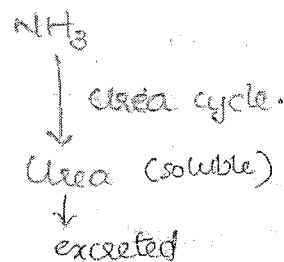 NH3
Urea cycle.
Urea (soluble)
excreted